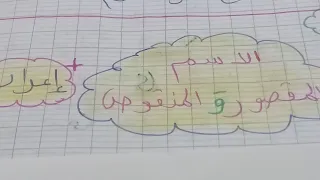 الاسم
المقصور و المنقوص
إعراب